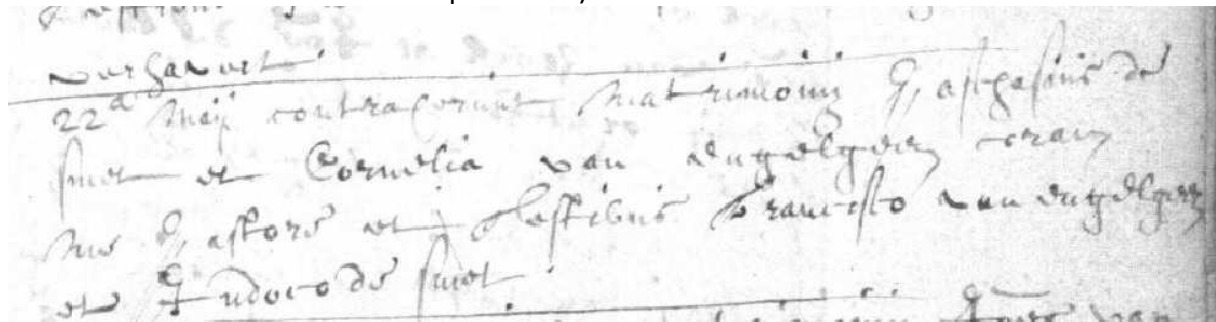 verhavert
22ª Meij contraxerunt Matrimoniu
smet et Cornelia van Engelgem coram
me Pastore et Testibus Francisco van Engelgem
et Judoco de smet